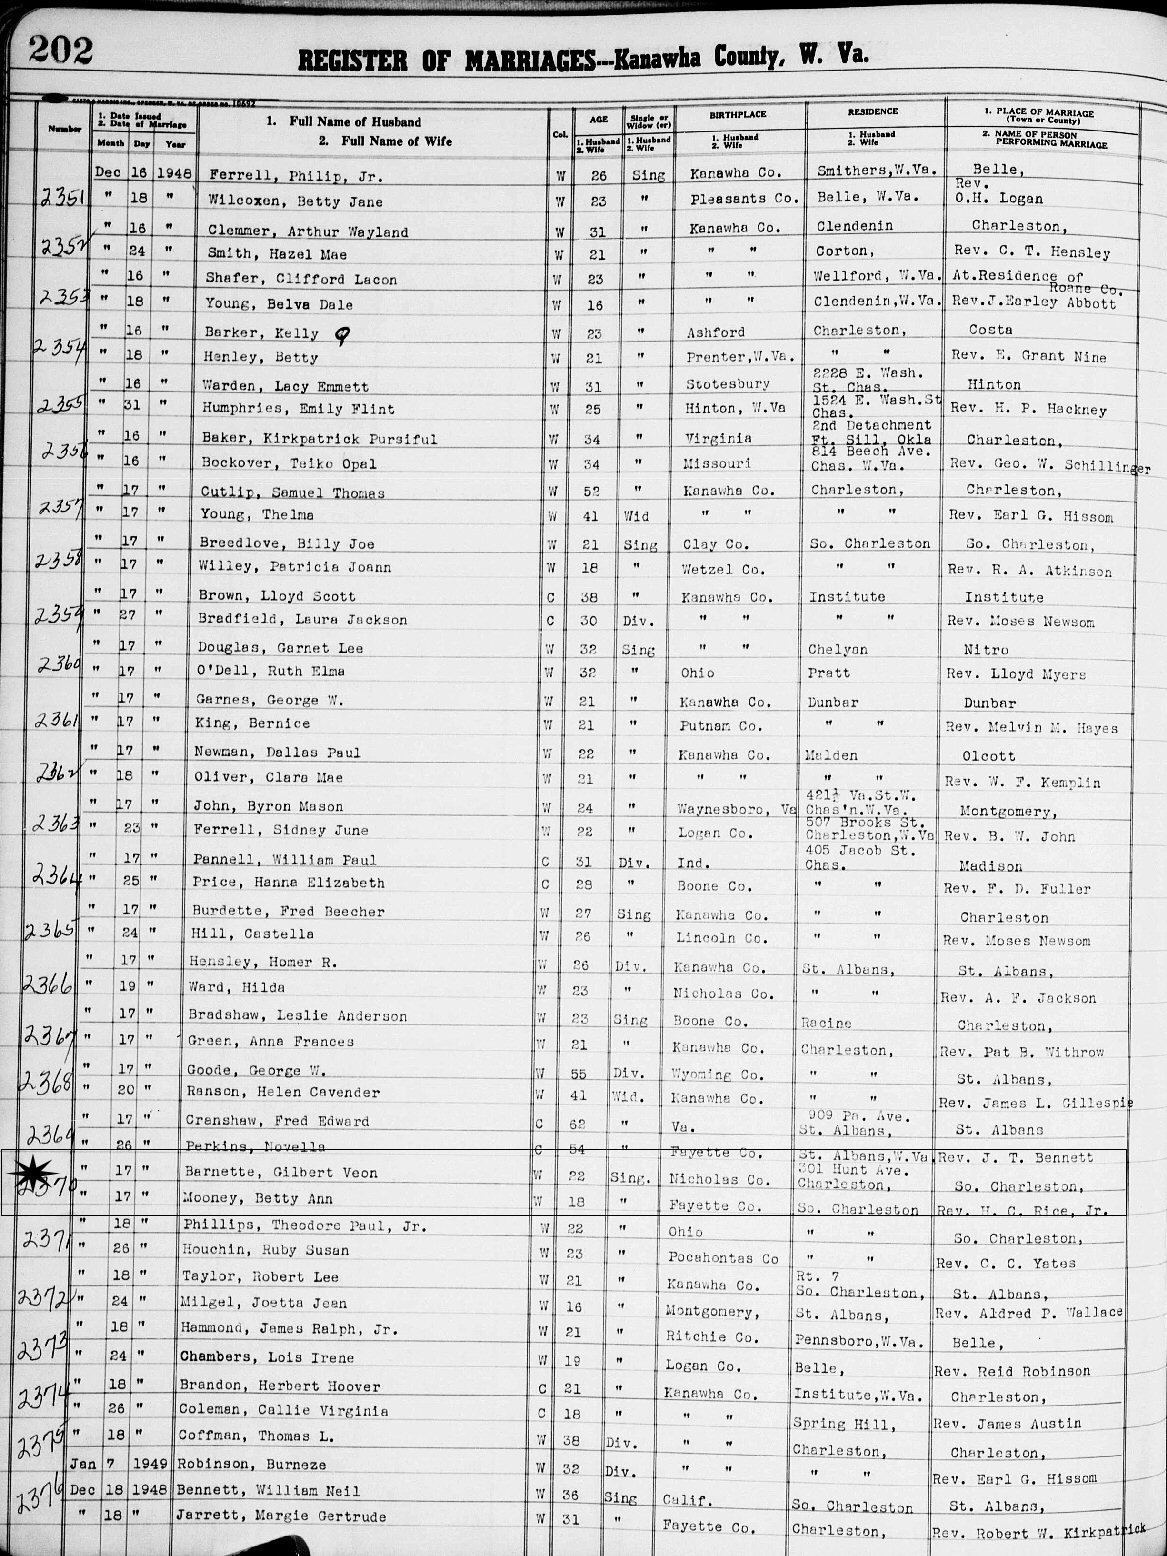 202
REGISTER OF MARRIAGES---Kanawha County, W. Va.
Number
1. Date Issued
2. Date of Marriage
Month Day Year
1. Full Name of Husband
2. Full Name of Wife
Col.
AGE
1. Husband
2. Wife
Single or
Widow (er)
1. Husband
2. Wife
BIRTHPLACE
1. Husband
2. Wife
RESIDENCE
1. Husband
2. Wife
1. PLACE OF MARRIAGE
(Town or County)
2. NAME OF PERSON
PERFORMING MARRIAGE
Dec 16 1948 Ferrell, Philip, Jr. W 26 Sing Kanawha Co. Smithers,W.Va. Belle,
2351 " 18 " Wilcoxen, Betty Jane W 23 " Pleasants Co. Belle, W.Va. Rev. O.H. Logan
" 16 " Clemmer, Arthur Wayland W 31 " Kanawha Co. Clendenin Charleston,
2352 " 24 " Smith, Hazel Mae W 21 " " " Corton, Rev. C. T. Hensley
" 16 " Shafer, Clifford Lacon W 23 " " " Wellford, W.Va. At.Residence of
Roane Co.
2353 " 18 " Young, Belva Dale W 16 " " " Clendenin,W.Va. Rev.J.Earley Abbott
" 16 " Barker, Kelly W 23 " Ashford Charleston, Costa
2354 " 18 " Henley, Betty W 21 " Prenter,W.Va. " " Rev. E. Grant Nine
" 16 " Warden, Lacy Emmett W 31 " Stotesbury 2228 E. Wash. St. Chas. Hinton
2355 " 31 " Humphries, Emily Flint W 25 " Hinton, W.Va 1524 E. Wash.St Chas. Rev. H. P. Hackney
" 16 " Baker, Kirkpatrick Pursiful W 34 " Virginia 2nd Detachment Ft. Sill, Okla Charleston,
2356 " 16 " Bockover, Teiko Opal W 34 " Missouri 814 Beech Ave. Chas. W.Va. Rev. Geo. W. Schillinger
" 17 " Cutlip, Samuel Thomas W 52 " Kanawha Co. Charleston, Charleston,
2357 " 17 " Young, Thelma W 41 Wid " " " " Rev. Earl G. Hissom
" 17 " Breedlove, Billy Joe W 21 Sing Clay Co. So. Charleston So. Charleston,
2358 " 17 " Willey, Patricia Joann W 18 " Wetzel Co. " " Rev. R. A. Atkinson
" 17 " Brown, Lloyd Scott C 38 " Kanawha Co. Institute Institute
2359 " 27 " Bradfield, Laura Jackson C 30 Div. " " " " Rev. Moses Newsom
" 17 " Douglas, Garnet Lee W 32 Sing " " Chelyan Nitro
2360 " 17 " O'Dell, Ruth Elma W 32 " Ohio Pratt Rev. Lloyd Myers
" 17 " Garnes, George W. W 21 " Kanawha Co. Dunbar Dunbar
2361 " 17 " King, Bernice W 21 " Putnam Co. " " Rev. Melvin M. Hayes
" 17 " Newman, Dallas Paul W 22 " Kanawha Co. Malden Olcott
2362 " 18 " Oliver, Clara Mae W 21 " " " " " Rev. W. F. Kemplin
" 17 " John, Byron Mason W 24 " Waynesboro, Va 421½ Va.St.W. Chas'n.W.Va. Montgomery,
2363 " 23 " Ferrell, Sidney June W 22 " Logan Co. 507 Brooks St. Charleston,W.Va Rev. B. W. John
" 17 " Pannell, William Paul C 31 Div. Ind. 405 Jacob St. Chas. Madison
2364 " 25 " Price, Hanna Elizabeth C 28 " Boone Co. " " Rev. F. D. Fuller
" 17 " Burdette, Fred Beecher W 27 Sing Kanawha Co. " " Charleston
2365 " 24 " Hill, Castella W 26 " Lincoln Co. " " Rev. Moses Newsom
" 17 " Hensley, Homer R. W 26 Div. Kanawha Co. St. Albans, St. Albans,
2366 " 19 " Ward, Hilda W 23 " Nicholas Co. " " Rev. A. F. Jackson
" 17 " Bradshaw, Leslie Anderson W 23 Sing Boone Co. Racine Charleston,
2367 " 17 " Green, Anna Frances W 21 " Kanawha Co. Charleston, Rev. Pat B. Withrow
" 17 " Goode, George W. W 55 Div. Wyoming Co. " " St. Albans,
2368 " 20 " Ranson, Helen Cavender W 41 Wid. Kanawha Co. " " Rev. James L. Gillespie
" 17 " Crenshaw, Fred Edward C 62 " Va. 909 Pa. Ave. St. Albans, St. Albans
2369 " 26 " Perkins, Novella C 54 " Fayette Co. St. Albans,W.Va. Rev. J. T. Bennett
" 17 " Barnette, Gilbert Veon W 22 Sing. Nicholas Co. 301 Hunt Ave. Charleston, So. Charleston,
2370 " 17 " Mooney, Betty Ann W 18 " Fayette Co. So. Charleston Rev. H. C. Rice, Jr.
" 18 " Phillips, Theodore Paul, Jr. W 22 " Ohio " " So. Charleston,
2371 " 26 " Houchin, Ruby Susan W 23 " Pocahontas Co " " Rev. C. C. Yates
" 18 " Taylor, Robert Lee W 21 " Kanawha Co. Rt. 7 So. Charleston, St. Albans,
2372 " 24 " Milgel, Joetta Jean W 16 " Montgomery, St. Albans, Rev. Aldred P. Wallace
" 18 " Hammond, James Ralph, Jr. W 21 " Ritchie Co. Pennsboro,W.Va. Belle,
2373 " 24 " Chambers, Lois Irene W 19 " Logan Co. Belle, Rev. Reid Robinson
" 18 " Brandon, Herbert Hoover C 21 " Kanawha Co. Institute,W.Va. Charleston,
2374 " 26 " Coleman, Callie Virginia C 18 " " " Spring Hill, Rev. James Austin
" 18 " Coffman, Thomas L. W 38 Div. " " Charleston, Charleston,
2375 Jan 7 1949 Robinson, Burneze W 32 Div. " " " " Rev. Earl G. Hissom
Dec 18 1948 Bennett, William Neil W 36 Sing Calif. So. Charleston St. Albans,
2376 " 18 " Jarrett, Margie Gertrude W 31 " Fayette Co. Charleston, Rev. Robert W. Kirkpatrick